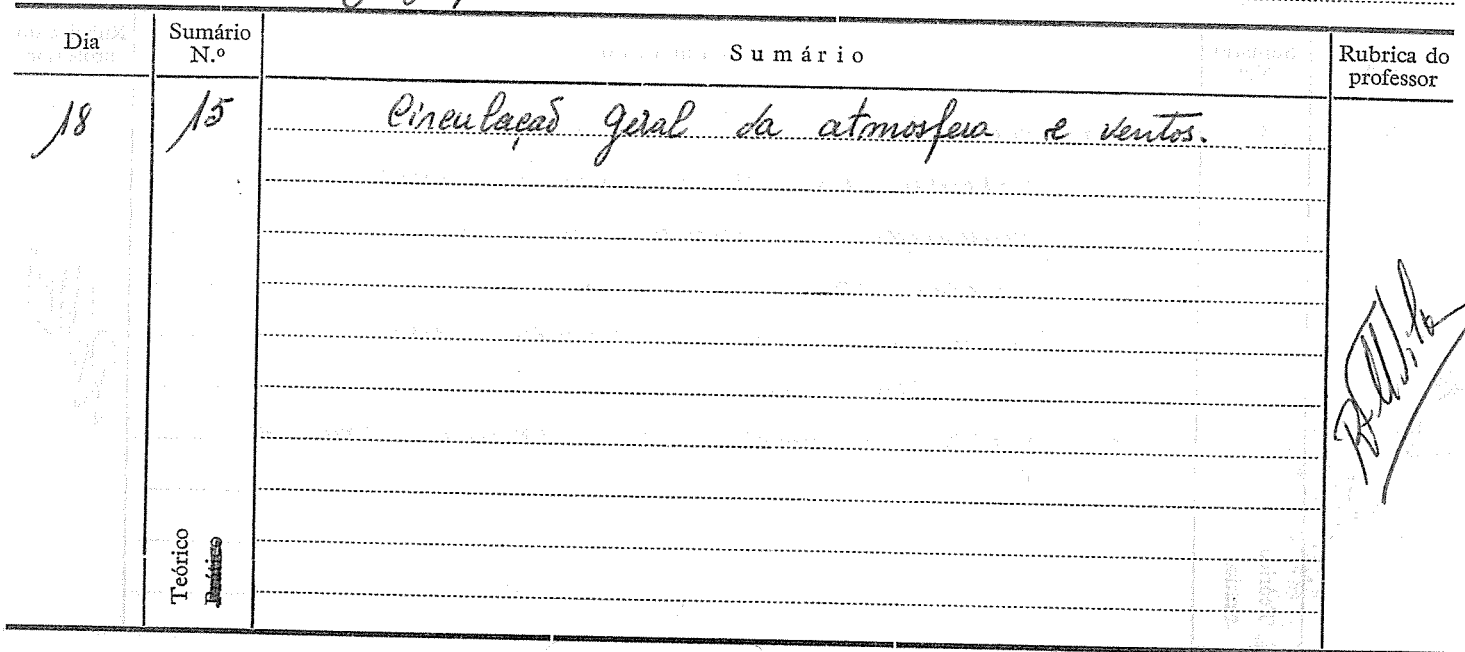 Dia
Sumário
N.º
Sumário
Rubrica do
professor
18
15
Circulação geral da atmosfera e ventos.
Teórico
Prático